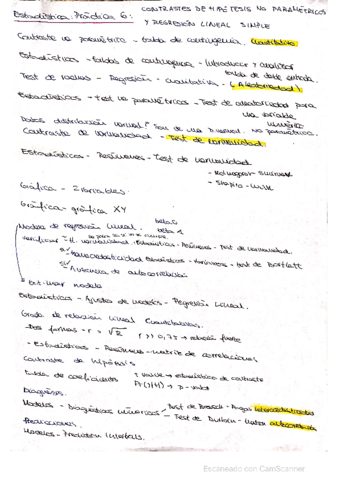 Estadística: Práctica 6: CONTRASTES DE HIPÓTESIS NO PARAMÉTRICOS
Y REGRESIÓN LINEAL SIMPLE
Contraste no paramétrico - tabla de contingencia. Cuantitativa
Estadísticos - tablas de contingencia - Introducir y analizar
tabla de doble entrada.
Test de rachas - Regresión - cualitativa - (Aleatoriedad)
Estadísticos - Test no paramétricos - Test de aleatoriedad para
una variable
numérica
Datos distribución normal? no paramétrico.
Contraste de normalidad - Test de normalidad
Estadísticos - Resúmenes - Test de normalidad
- Kolmogorov-Smirnov
- Shapiro-Wilk
Gráfica - 2 variables.
Gráficas - gráfica XY
Modelo de regresión lineal. beta 0
beta 1
Verificar - H. normalidad - Estadísticos - Resúmenes - Test de normalidad.
- Homocedasticidad Estadísticos - Varianzas - test de Bartlett
- Ausencia de autocorrelación
* Estimar modelo
Estadísticos - Ajuste de modelos - Regresión Lineal.
Grado de relación lineal Cuantitativas.
- Dos formas - r = √R r > 0,75 → relación fuerte
- Estadísticos - Resúmenes - matriz de correlaciones
Contraste de hipótesis
Tabla de coeficientes t value → estadístico de contraste
Pr(>|t|) → p-valor
Diagnosis.
Modelos - Diagnósticos numéricos - Test de Breusch-Pagan heterocedasticidad
- Test de Durbin-Watson autocorrelación
Predicciones.
Modelos - Prediction Intervals.
Escaneado con CamScanner